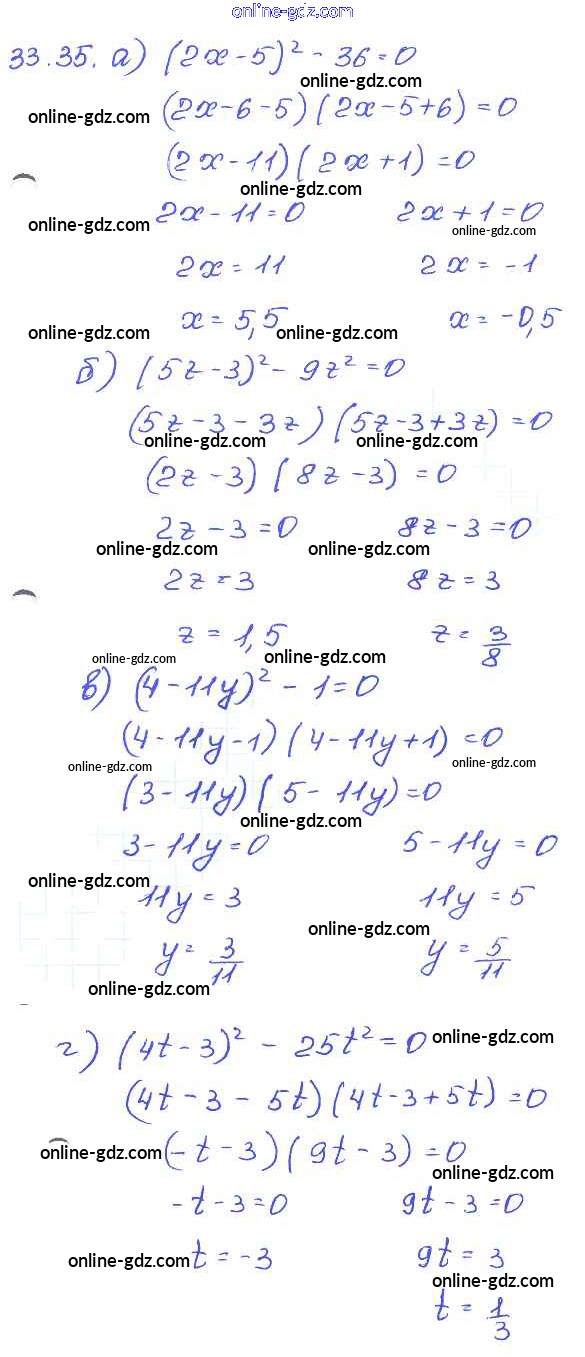 online-gdz.com
33.35. а) (2x-5)² - 36 = 0
online-gdz.com
online-gdz.com (2x-6-5)(2x-5+6) = 0
(2x-11)(2x+1) = 0
online-gdz.com
online-gdz.com 2x-11=0 2x+1=0
online-gdz.com
2x = 11 2x = -1
online-gdz.com x = 5,5 online-gdz.com x = -0,5
б) (5z-3)² - 9z² = 0
(5z-3-3z)(5z-3+3z) = 0
online-gdz.com online-gdz.com
(2z-3)(8z-3) = 0
2z-3=0 8z-3=0
online-gdz.com online-gdz.com
2z=3 8z=3
z = 1,5 z = 3/8
online-gdz.com online-gdz.com
в) (4-11y)² - 1 = 0
(4-11y-1)(4-11y+1) = 0
online-gdz.com online-gdz.com
(3-11y)(5-11y)=0
online-gdz.com
3-11y=0 5-11y=0
online-gdz.com 11y = 3 11y = 5
online-gdz.com
y = 3/11 y = 5/11
online-gdz.com
г) (4t-3)² - 25t² = 0 online-gdz.com
(4t-3-5t)(4t-3+5t) = 0
online-gdz.com (-t-3)(9t-3) = 0
online-gdz.com
-t-3=0 9t-3=0
online-gdz.com t = -3 9t = 3
online-gdz.com
t = 1/3